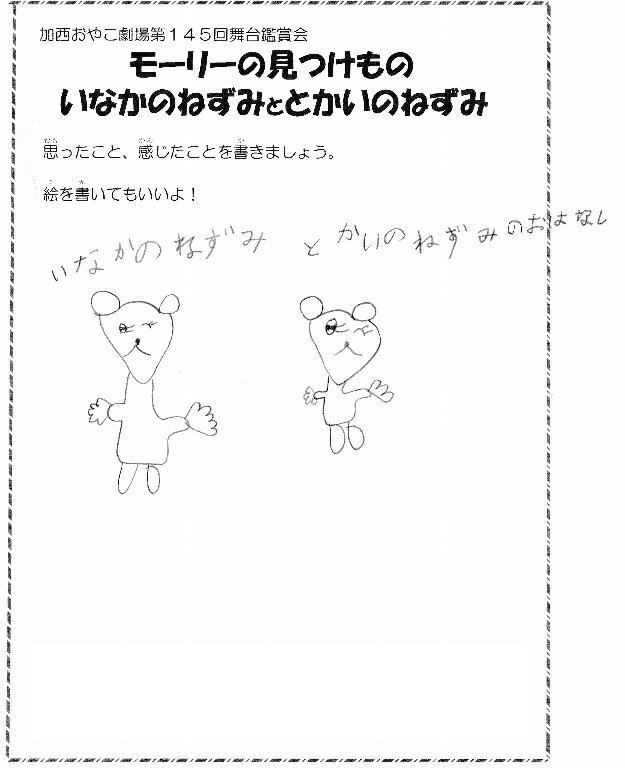 加西おやこ劇場第１４５回舞台鑑賞会
モーリーの見つけもの
いなかのねずみととかいのねずみ
思ったこと、感じたことを書きましょう。
絵を書いてもいいよ！
いなかのねずみ とかいのねずみのおはなし